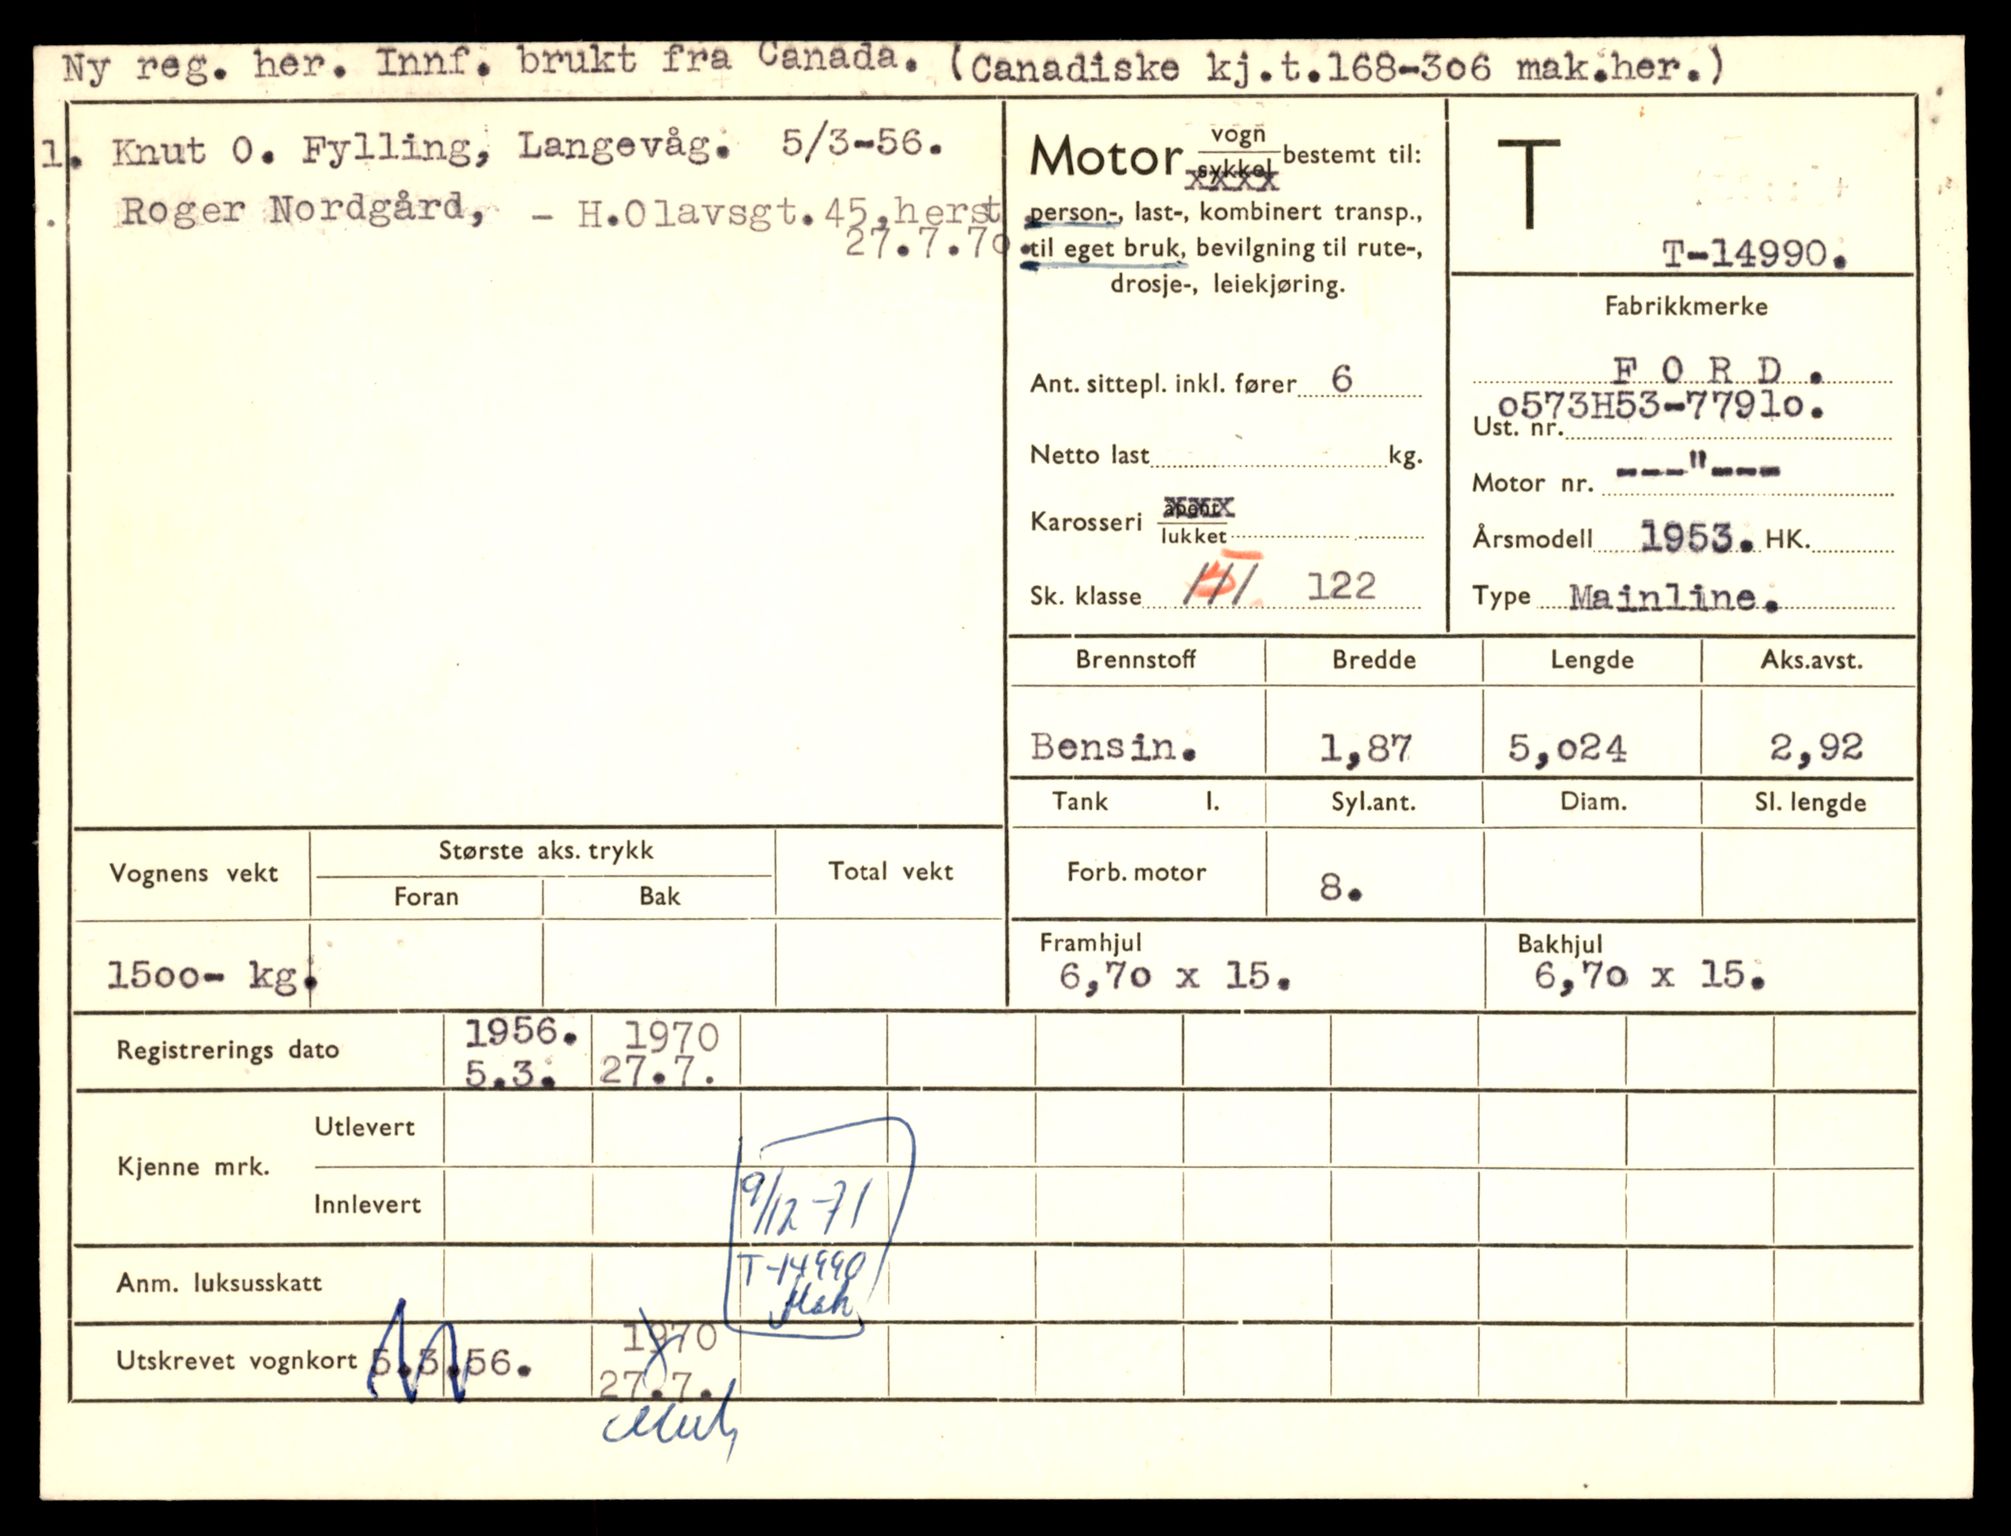 Ny reg. her. Innf. brukt fra Canada. (Canadiske kj.t.168-306 mak.her.)
1. Knut O. Fylling, Langevåg. 5/3-56.
. Roger Nordgård, - H.Olavsgt.45,herst
27.7.70.
Motor vogn sykkel xxxx bestemt til:
person-, last-, kombinert transp.,
til eget bruk, bevilgning til rute-,
drosje-, leiekjøring.
Ant. sittepl. inkl. fører 6
Netto last kg.
Karosseri åpent xxx lukket
Sk. klasse III 122
T
T-14990.
Fabrikkmerke
F O R D .
Ust. nr. o573H53-7791o.
Motor nr. ---"---
Årsmodell 1953. HK.
Type Mainline.
Brennstoff Bredde Lengde Aks.avst.
Bensin. 1,87 5,o24 2,92
Tank l. Syl.ant. Diam. Sl. lengde
Forb. motor 8.
Framhjul Bakhjul
6,7o x 15. 6,7o x 15.
Vognens vekt Største aks. trykk Total vekt
Foran Bak
15oo- kg.
Registrerings dato 1956. 1970
5.3. 27.7.
Kjenne mrk. Utlevert
Innlevert 9/12-71
Anm. luksusskatt T-14990
Utskrevet vognkort 5.3.56. 1970
27.7.